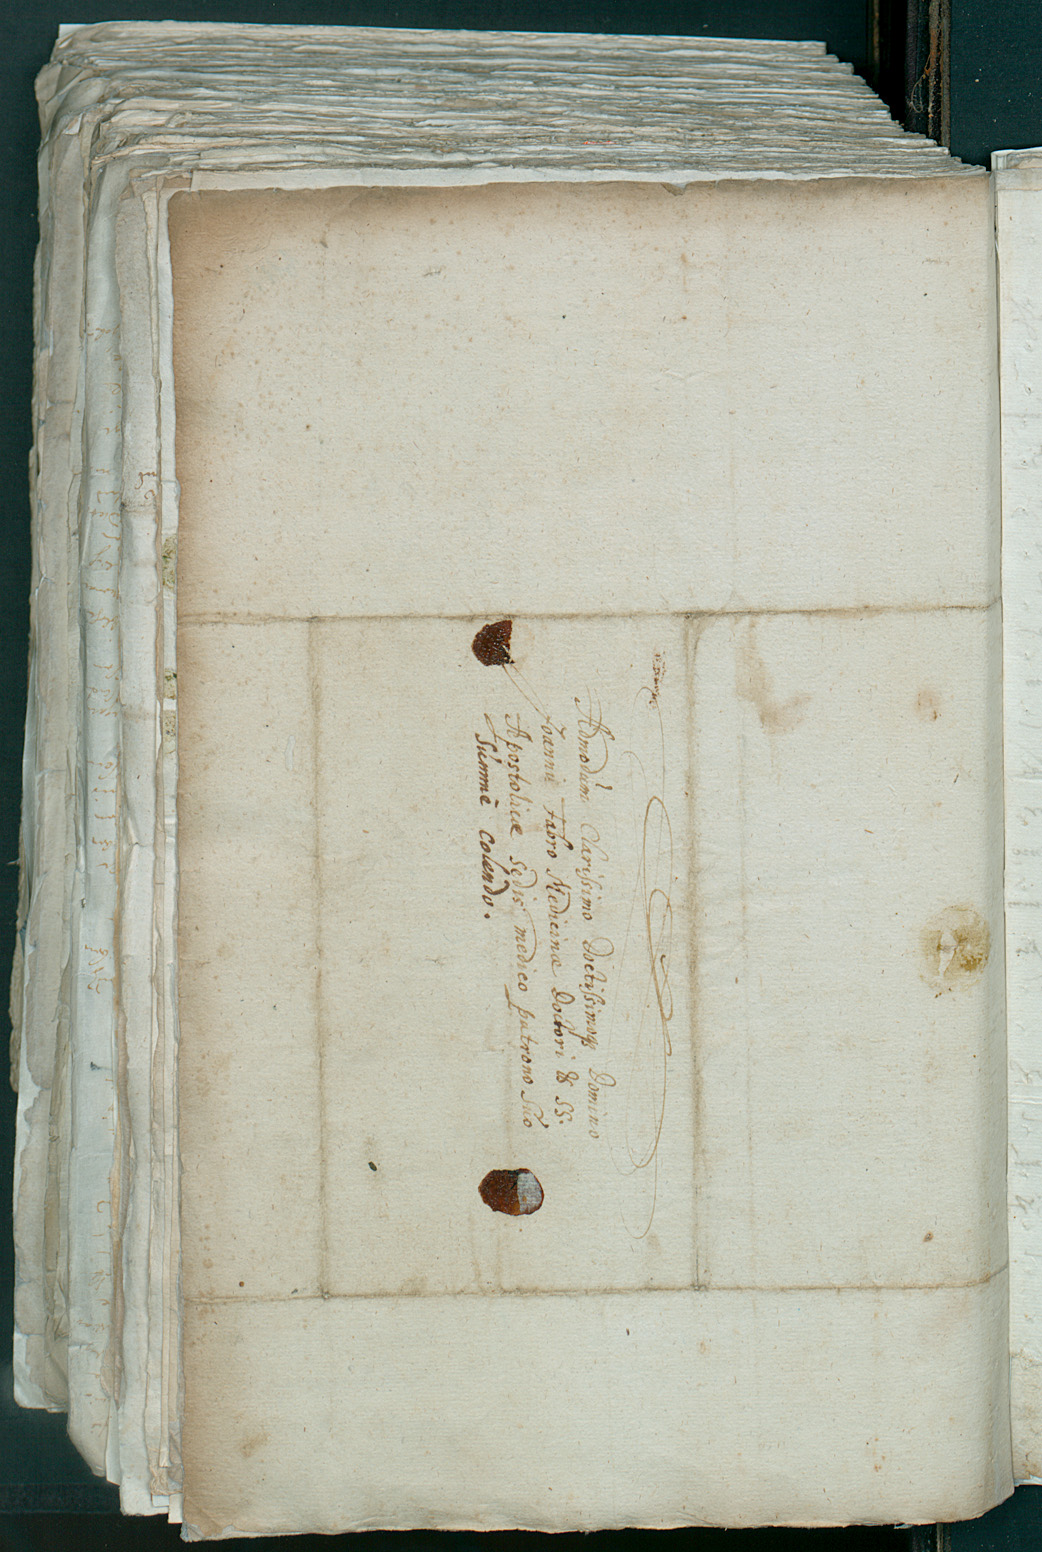 Admodùm Clarissimo Doctissimoq; Domino
Joanni Fabro Medicinæ Doctori & SS.
Apostolicæ Sedis medico patrono suo
Summè colendo.